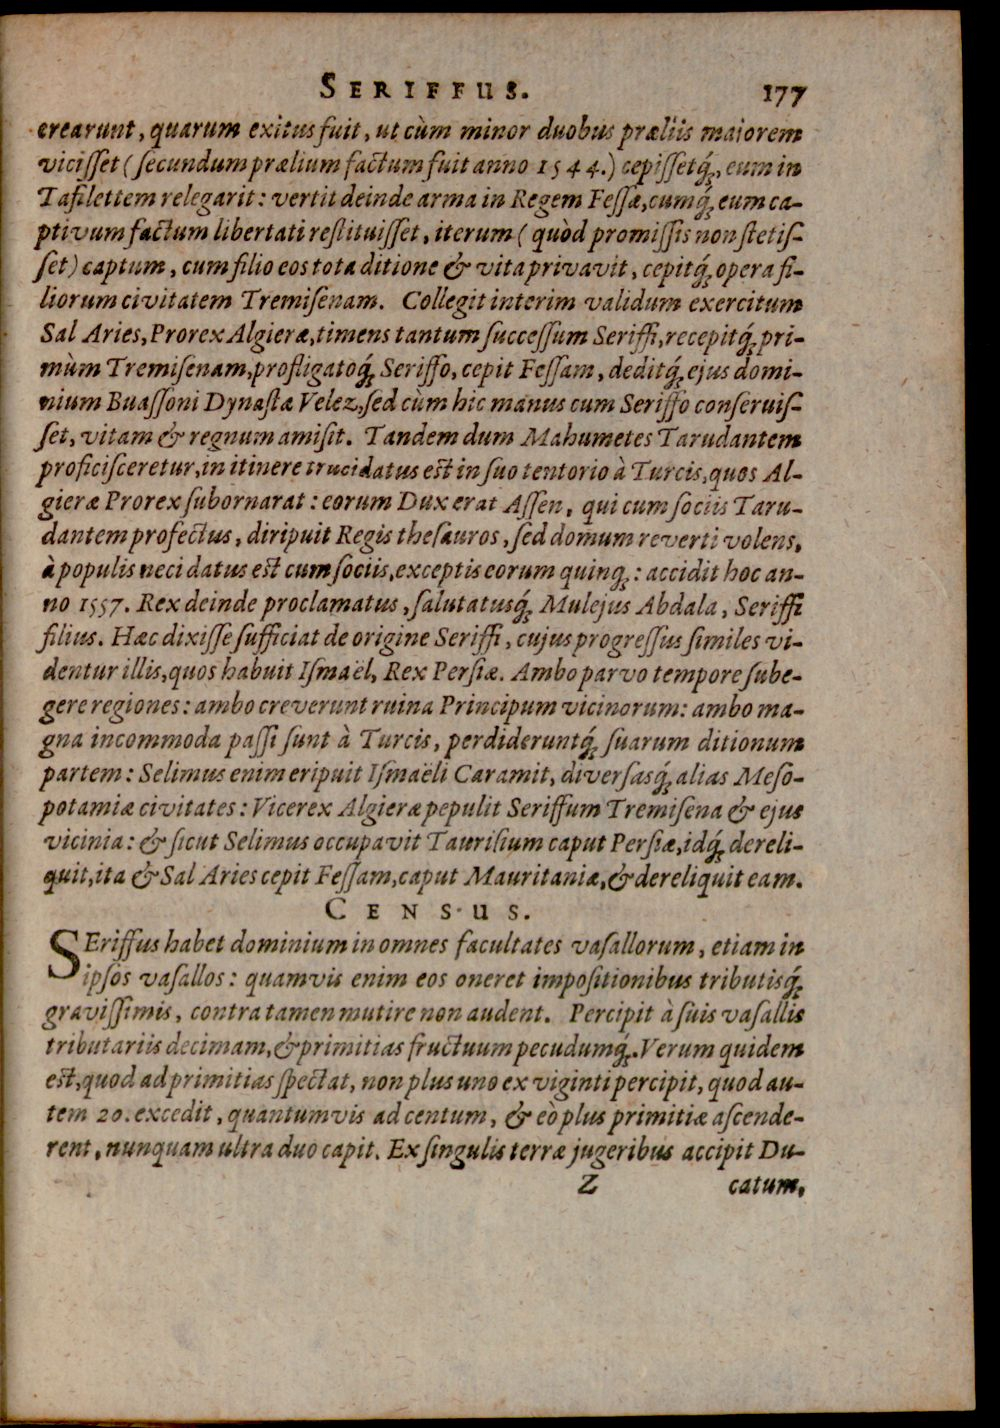 SERIFFUS. 177
crearunt, quarum exitus fuit, ut cùm minor duobus præliis majorem
vicisset (secundum prælium factum fuit anno 1544.) cepissetq́;, eum in
Tafilettem relegarit: vertit deinde arma in Regem Fessæ, cumq́; eum ca-
ptivum factum libertati restituisset, iterum (quòd promissis non stetis-
set) captum, cum filio eos tota ditione & vita privavit, cepitq́; opera fi-
liorum civitatem Tremisenam. Collegit interim validum exercitum
Sal Aries, Prorex Algieræ, timens tantum successum Seriffi, recepitq́; pri-
mùm Tremisenam, profligatoq́; Seriffo, cepit Fessam, deditq́; ejus domi-
nium Buassoni Dynastæ Velez, sed cùm hic manus cum Seriffo conseruis-
set, vitam & regnum amisit. Tandem dum Mahumetes Tarudantem
proficisceretur, in itinere trucidatus est in suo tentorio à Turcis, quos Al-
gieræ Prorex subornarat: eorum Dux erat Assen, qui cum sociis Taru-
dantem profectus, diripuit Regis thesauros, sed domum reverti volens,
à populis neci datus est cum sociis, exceptis eorum quinq;: accidit hoc an-
no 1557. Rex deinde proclamatus, salutatusq́; Mulejus Abdala, Seriffi
filius. Hæc dixisse sufficiat de origine Seriffi, cujus progressus similes vi-
dentur illis, quos habuit Ismaël, Rex Persiæ. Ambo parvo tempore sube-
gere regiones: ambo creverunt ruina Principum vicinorum: ambo ma-
gna incommoda passi sunt à Turcis, perdideruntq́; suarum ditionum
partem: Selimus enim eripuit Ismaëli Caramit, diversasq́; alias Meso-
potamiæ civitates: Vicerex Algieræ pepulit Seriffum Tremisena & ejus
vicinia: & sicut Selimus occupavit Taurisium caput Persiæ, idq́; dereli-
quit, ita & Sal Aries cepit Fessam, caput Mauritaniæ, & dereliquit eam.
CENSUS.
SEriffus habet dominium in omnes facultates vasallorum, etiam in
ipsos vasallos: quamvis enim eos oneret impositionibus tributisq́;
gravissimis, contra tamen mutire non audent. Percipit à suis vasallis
tributariis decimam, & primitias fructuum pecudumq́;. Verum quidem
est, quod ad primitias spectat, non plus uno ex viginti percipit, quod au-
tem 20. excedit, quantumvis ad centum, & eò plus primitiæ ascende-
rent, nunquam ultra duo capit. Ex singulis terræ jugeribus accipit Du-
Z catum,